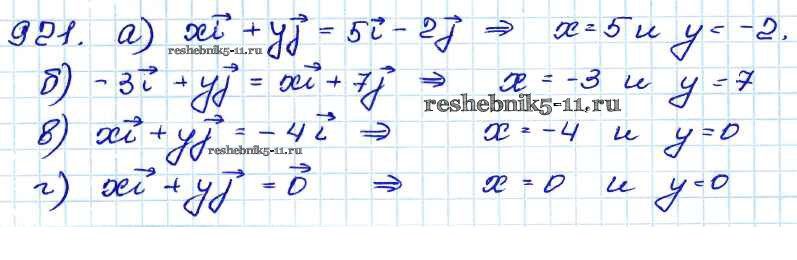 921. а) xi⃗ + yj⃗ = 5i⃗ - 2j⃗ ⇒ x = 5 и y = -2.
reshebnik5-11.ru
б) -3i⃗ + yj⃗ = xi⃗ + 7j⃗ ⇒ x = -3 и y = 7
reshebnik5-11.ru
в) xi⃗ + yj⃗ = -4i⃗ ⇒ x = -4 и y = 0
reshebnik5-11.ru
г) xi⃗ + yj⃗ = 0⃗ ⇒ x = 0 и y = 0